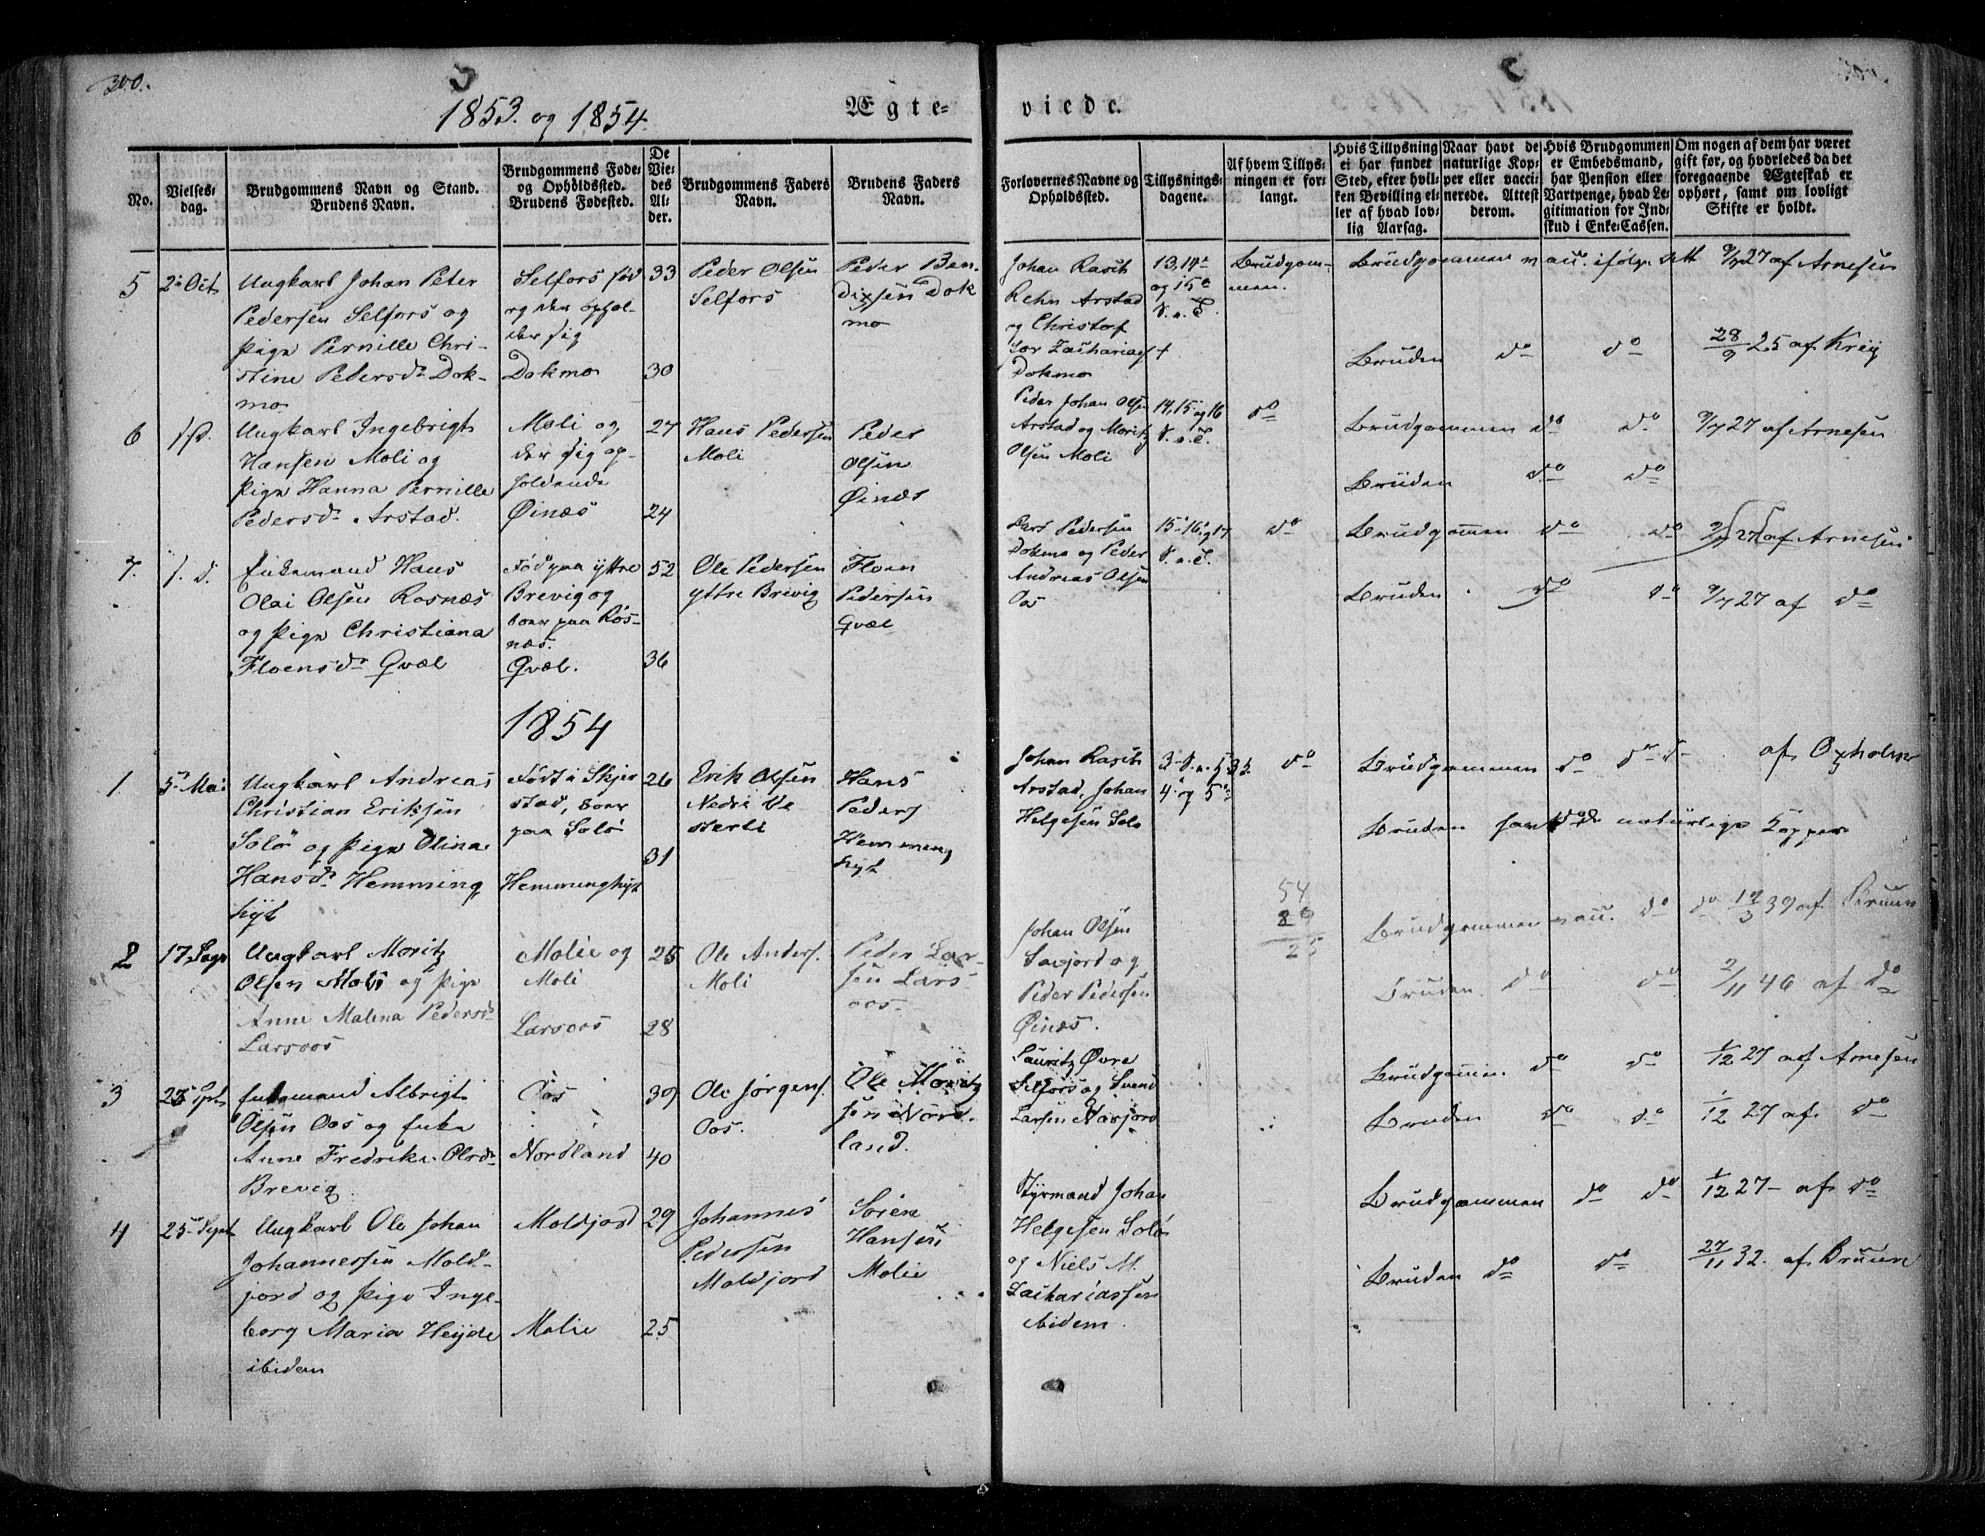 300.
1853. og 1854.
Ægte-
viede.
No.
Vielses-
dag.
Brudgommens Navn og Stand.
Brudens Navn.
Brudgommens Føde-
og Opholdssted.
Brudens Fødested.
De
Vie-
des
Al-
der.
Brudgommens Faders
Navn.
Brudens Faders
Navn.
Forlovernes Navne og
Opholdssted.
Tillysnings-
dagene.
Af hvem Tillys-
ningen er for-
langt.
Hvis Tillysning
ei har fundet
Sted, efter hvil-
ken Bevilling el-
ler af hvad lov-
lig Aarsag.
Naar havt de
naturlige Kop-
per eller vacci-
nerede. Attest
derom.
Hvis Brudgommen
er Embedsmand,
har Pension eller
Vartpenge, hvad Le-
gitimation for Ind-
skud i Enke-Cassen.
Om nogen af dem har været
gift før, og hvorledes da det
foregaaende Ægteskab er
ophørt, samt om lovligt
Skifte er holdt.
5
2 Oct
Ungkarl Johan Peter
Pedersen Selfors og
Pige Pernille Chri-
stine Pedersd Dok-
mo
Selfors fød
og der ophol-
der sig
Dokmo
33
30
Peder Olsen
Selfors
Peder Ben-
dixsen Dok
mo
Johan Rasch
Rehn Arstad
og Christof
fer Zachariasf
Dokmo
13, 14
og 15
S. e. T.
Brudgom-
men.
Brudgommen vac. ifølge Att 9/7 27 af Arnesen
Bruden do do 28/9 25 af Kreij
6
s.d.
Ungkarl Ingebrigt
Hansen Moli og
Pige Hanna Pernille
Pedersd Arstad.
Moli og
der sig op-
holdende
Øinæs
27
24
Hans Pedersen
Moli
Peder
Olsen
Øinæs
Peder Johan Olsen
Arstad og Moritz
Olsen Moli
14, 15 og 16
S. e. T.
do
Brudgommen do do 9/7 27 af Arnesen
Bruden do do
7.
s. d.
Enkemand Hans
Olai Olsen Rosnæs
og Pige Christiana
Floensd Qvæl
Fød paa yttre
Brevig og
boer paa Ros-
næs.
Qvæl.
52
36
Ole Pedersen
yttre Brevig
Floen
Pedersen
Qvæl
Lars Pedersen
Dokmo og Peder
Andreas Olsen
Oos
15, 16 og 17
S. e. T.
do
Brudgommen do do 9/7 27 af Arnesen
Bruden do do 9/7 27 af do
1854
1
5 Mai
Ungkarl Andreas
Christian Eriksen
Solø og Pige Olina
Hansd Hemming
hyt
Født i Skjer
stad, boer
paa Solø
Hemminghyt
26
31
Erik Olsen
Nedre Ve
sterli
Hans
Peders
Hemming
hyt
Johan Rasch
Arstad, Johan
Helgesen Solø
4 og 5
do
Brudgommen do do af Oxholm
Bruden havt de naturlige Kopper
2
17 Sept
Ungkarl Moritz
Olsen Moli og Pige
Anne Malena Pedersd
Larsoos
Molie og
Moli
Larsoos
25
28
Ole Anders.
Moli
Peder Lar-
sen Lars
oos.
Johan Olsen
Savjord og
Peder Pedersen
Øinæs.
54
29
25
Brudgommen vac. do do 17/3 39 af Bruun
Bruden do do 2/11 46 af do
3
25 Sept
Enkemand Albrigt
Olsen Oos og Enke
Anne Fredrikke Olsd
Brevig
Oos
Nordland
39
40
Ole Jørgens.
Oos.
Ole Moritz
sen Nord-
land.
Lauritz Øvre
Selfors og Svend
Larsen Navjord
Brudgomm. do do 1/12 27 af Arnesen
Bruden do do 1/12 27 af do
4
25 Sept
Ungkarl Ole Johan
Johannessen Mold-
jord og Pige Inge-
borg Maria Heyde
ibidem
Moldjord
Molie
29
25
Johannes
Pedersen
Moldjord
Søren
Hansen
Molie
Styrmand Johan
Helgesen Solø
og Niels M.
Zachariassen
ibidem.
Brudgommen do do 1/12 27 af do
Bruden do do 27/11 32. af Bruun